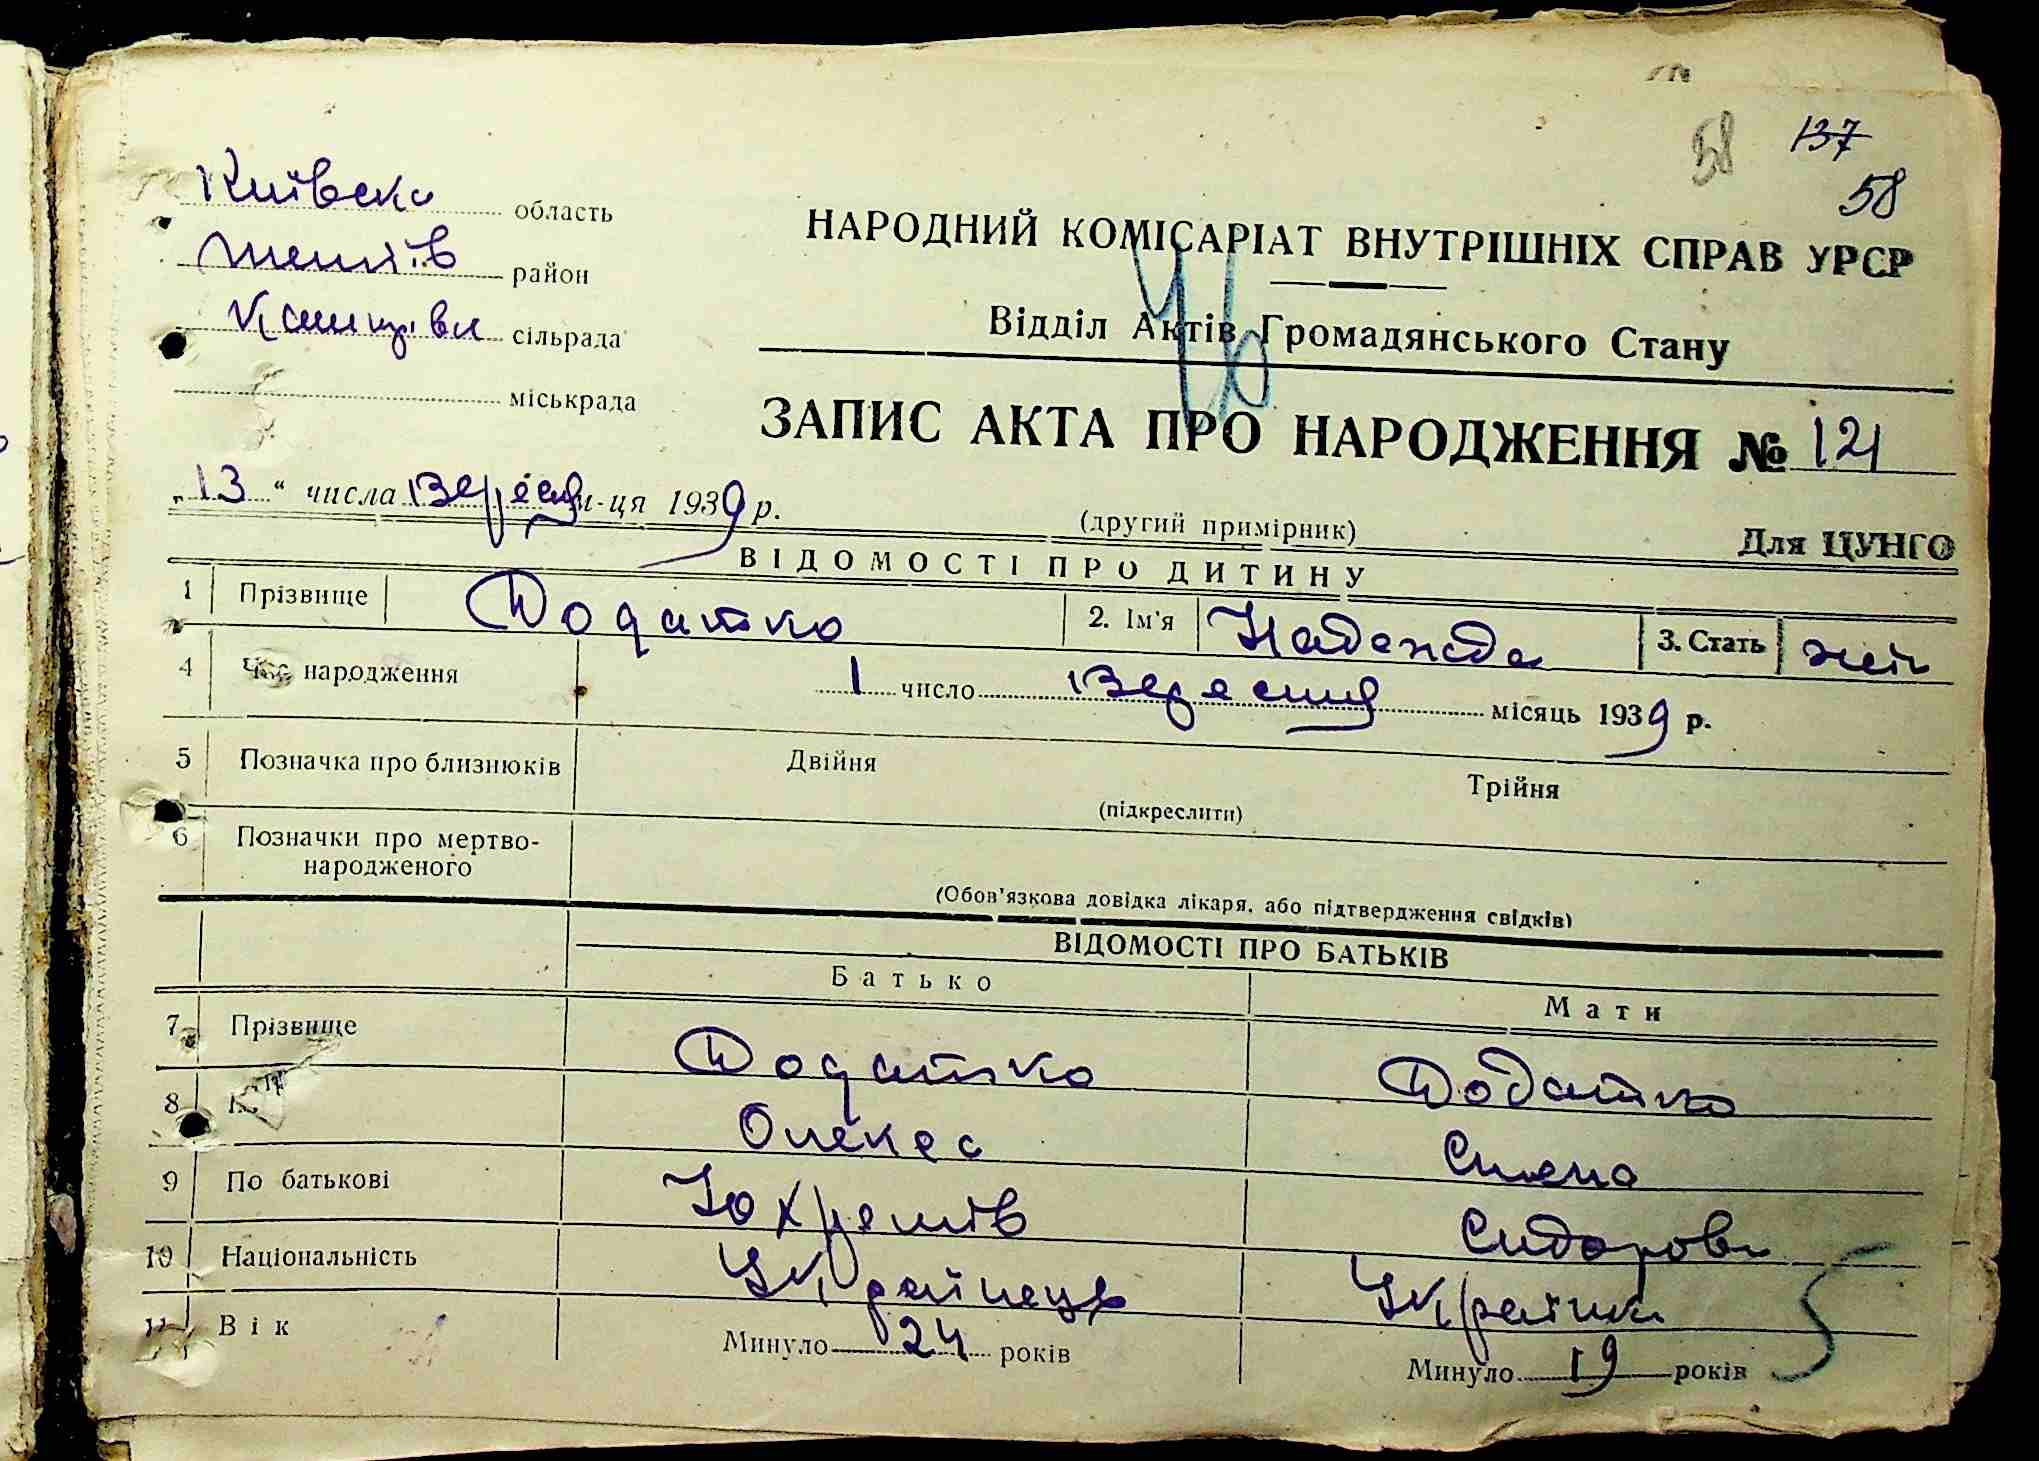 58 137
58
Київська область
район
сільрада
міськрада
НАРОДНИЙ КОМІСАРІАТ ВНУТРІШНІХ СПРАВ УРСР
Відділ Актів Громадянського Стану
ЗАПИС АКТА ПРО НАРОДЖЕННЯ № 121
„13“ числа Вересня м-ця 1939 р.
(другий примірник)
Для ЦУНГО
ВІДОМОСТІ ПРО ДИТИНУ
1 Прізвище Додатко 2. Ім'я Надежда 3. Стать жін
4 Час народження 1 число Вересня місяць 1939 р.
5 Позначка про близнюків Двійня Трійня
(підкреслити)
6 Позначки про мертво-
народженого
(Обов'язкова довідка лікаря, або підтвердження свідків)
ВІДОМОСТІ ПРО БАТЬКІВ
Батько Мати
7 Прізвище Додатко Додатко
8
9 По батькові Юхремів Сидоровн
10 Національність Українець Українка
11 Вік Минуло 24 років Минуло 19 років